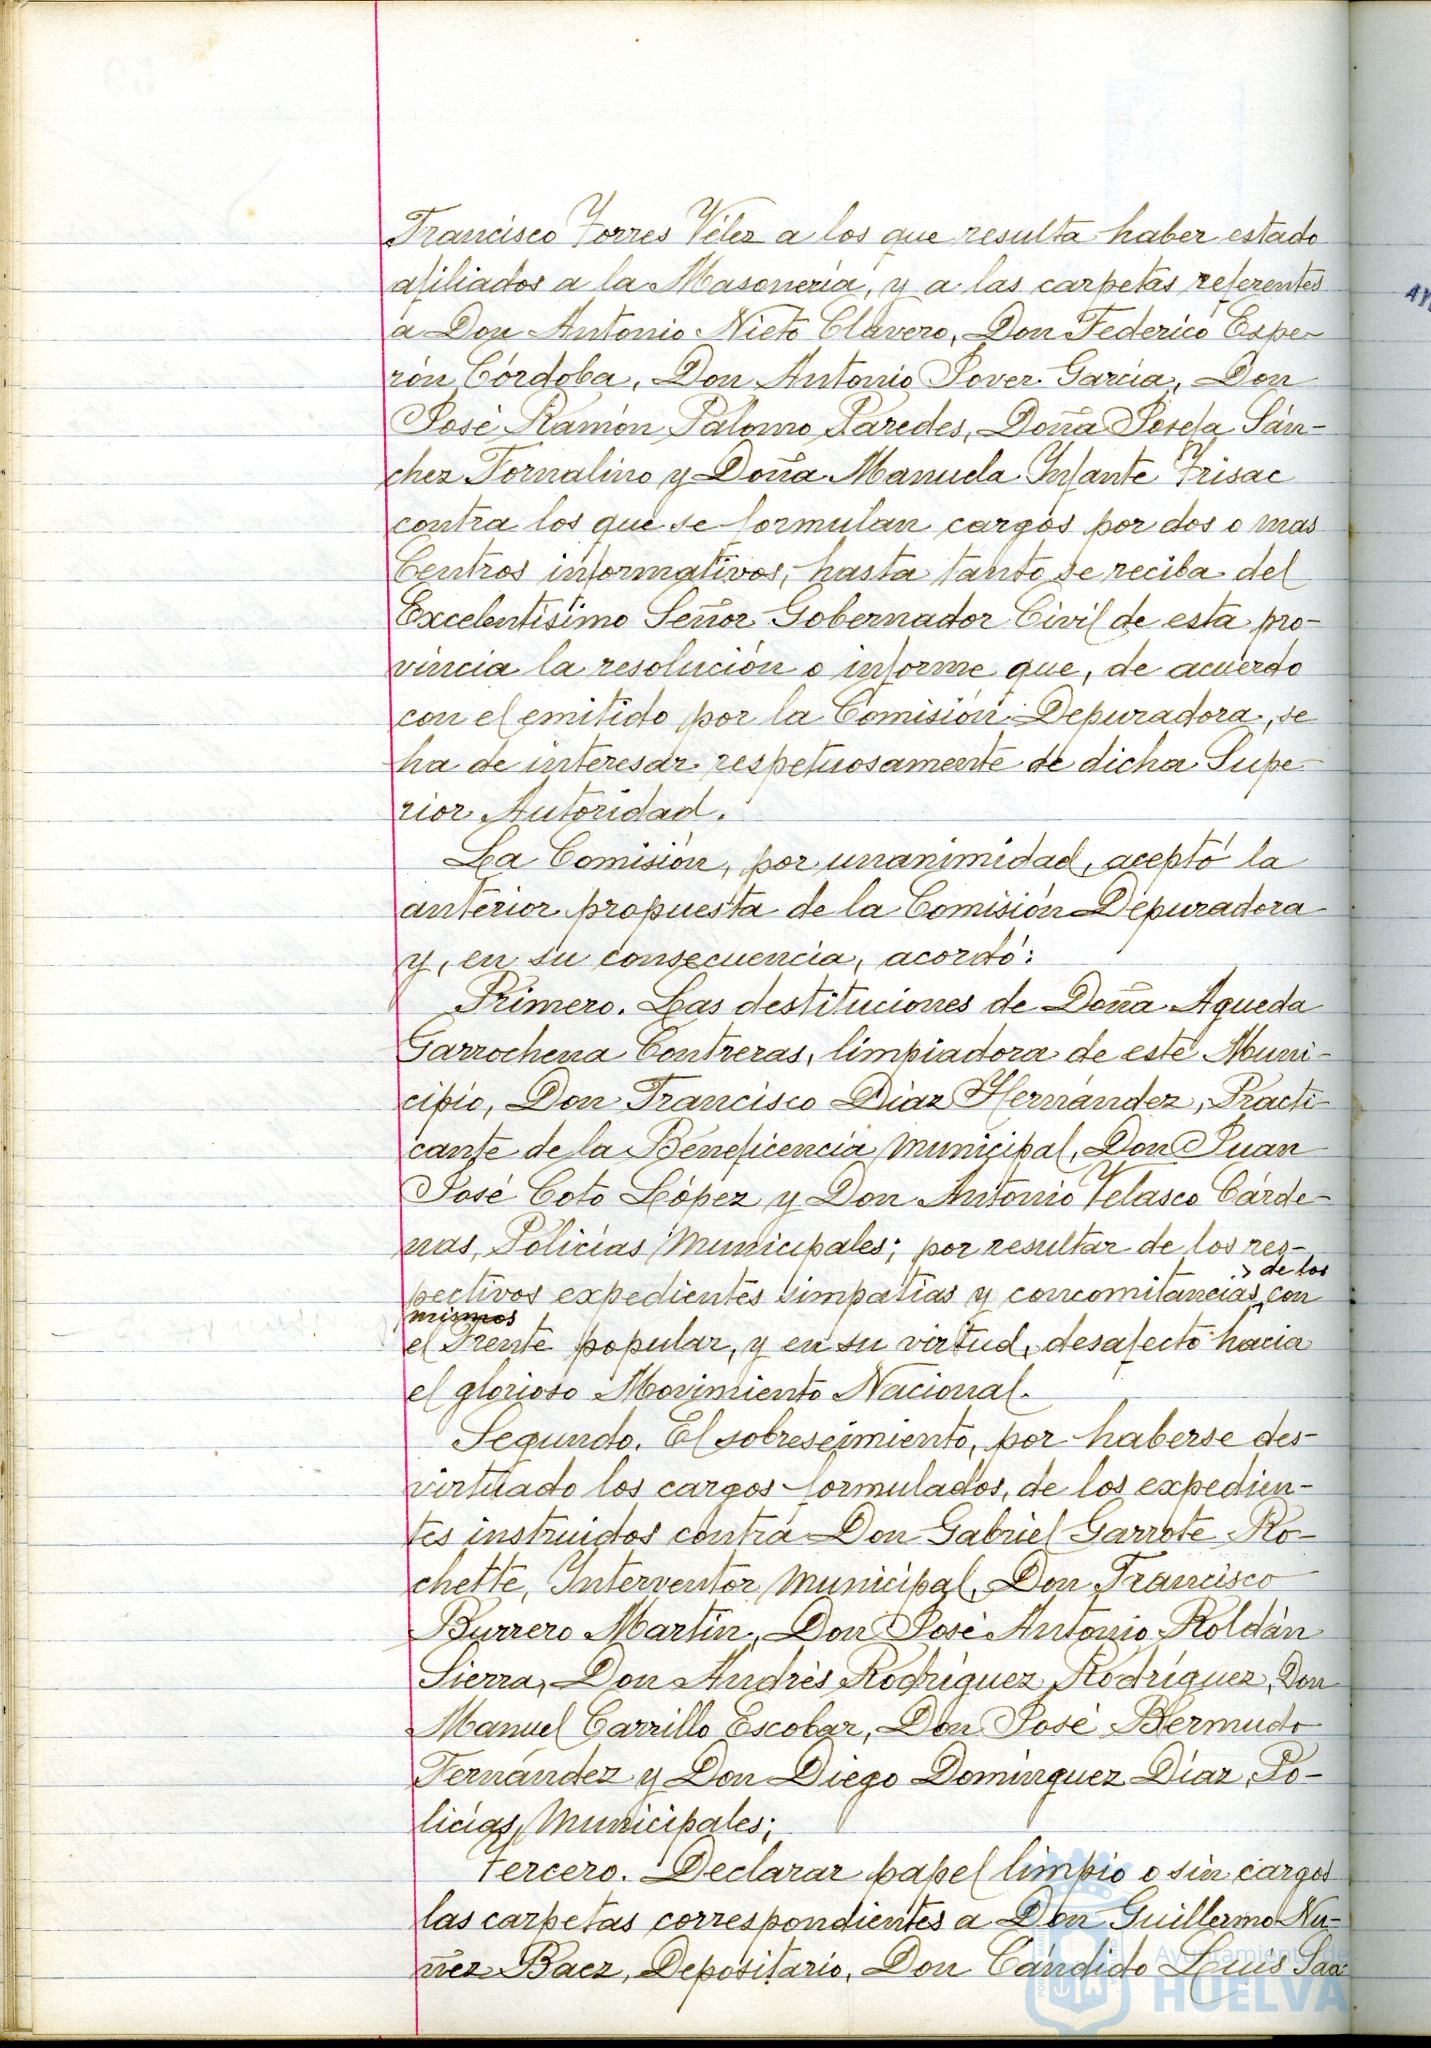 Francisco Torres Vélez a los que resulta haber estado
afiliados a la Masonería, y a las carpetas referentes
a Don Antonio Nieto Clavero, Don Federico Espe-
rón Córdoba, Don Antonio Jover García, Don
José Ramón Palomo Paredes, Doña Josefa Sán-
chez Tornalino y Doña Manuela Infante Trisac
contra los que se formulan cargos por dos o mas
Centros informativos, hasta tanto se reciba del
Excelentísimo Señor Gobernador Civil de esta pro-
vincia la resolución o informe que, de acuerdo
con el emitido por la Comisión Depuradora, se
ha de interesar respetuosamente de dicha Supe-
rior Autoridad.
La Comisión, por unanimidad, aceptó la
anterior propuesta de la Comisión Depuradora
y, en su consecuencia, acordó:
Primero. Las destituciones de Doña Agueda
Garrochena Contreras, limpiadora de este Muni-
cipio, Don Francisco Díaz Hernández, Practi-
cante de la Beneficencia municipal, Don Juan
José Coto López y Don Antonio Velasco Cárde-
nas, Policías Municipales; por resultar de los res-
> de los
pectivos expedientes simpatías y concomitancias con
mismos
el Frente popular, y en su virtud, desafecto hacia
el glorioso Movimiento Nacional.
Segundo. El sobreseimiento, por haberse des-
virtuado los cargos formulados, de los expedien-
tes instruidos contra Don Gabriel Garrote Ro-
chette, Interventor municipal, Don Francisco
Burrero Martín, Don José Antonio Roldán
Sierra, Don Andrés Rodríguez Rodríguez, Don
Manuel Carrillo Escobar, Don José Bermudo
Fernández y Don Diego Domínguez Díaz, Po-
licías Municipales;
Tercero. Declarar papel limpio o sin cargos
las carpetas correspondientes a Don Guillermo Nu-
ñez Baez, Depositario, Don Cándido Luis Saa-
Ayuntamiento de
HUELVA